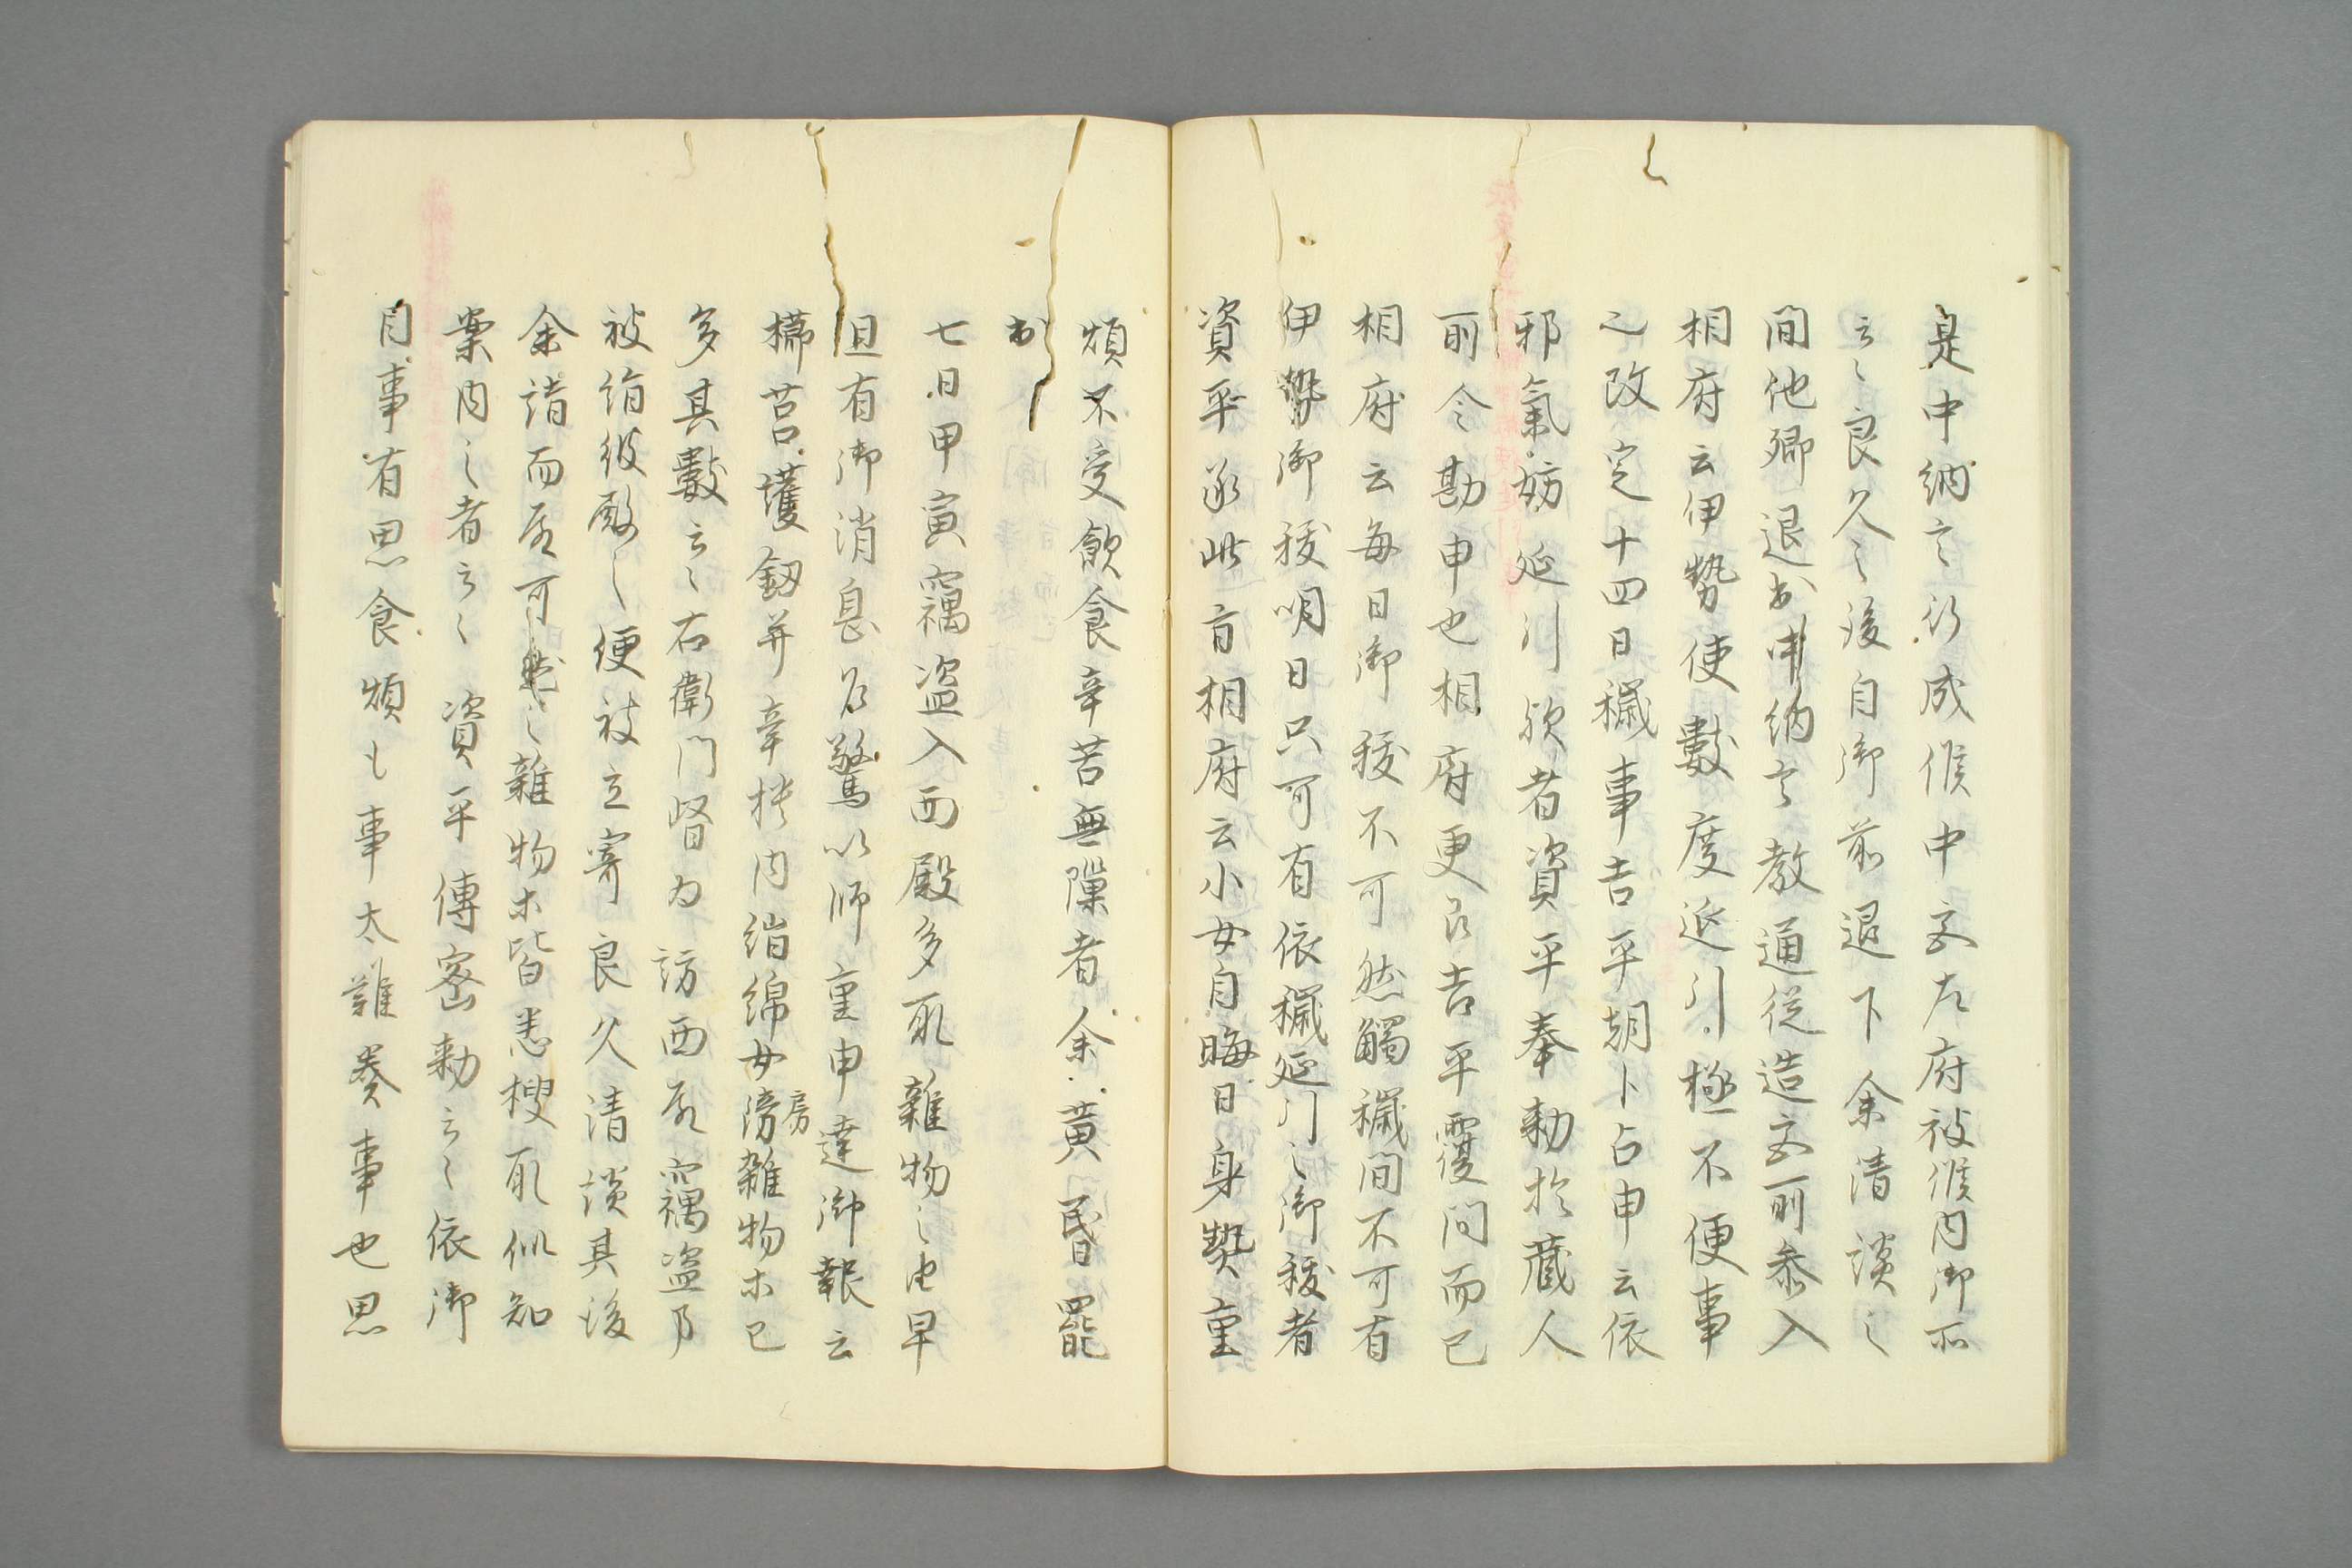 是中納言行成候中文左府被候内御所
云々良久之後自御前退下余清談之
間他卿退出中納言教通従造文所参入
相府云伊勢使數度延引極不便事
之改定十四日穢事吉平朝卜占申云依
邪氣妨延引欤者資平奉勅於蔵人
所令勘申也相府更召吉平覆問而已
相府云毎日御祓不可然觸穢間不可有
伊勢御祓明日只可有依穢延引之御祓者
資平承此旨相府云小女自晦日身熱重
煩不受飲食辛苦無隙者余黄昏罷
出
七日甲寅竊盗入西殿多取雜物之由早
旦有御消息乍驚以師重申達御報云
櫛筥護釼并辛横内絹綿女房雑物木已
多其數云々右衛門督為訪西殿竊盗乃
被詣彼殿之便被立寄良久清談其後
余詣而殿可 之雜物木皆悉捜取似知
案内之者云々資平傳密勅云々依御
目事有思食煩也事太難奏事也思